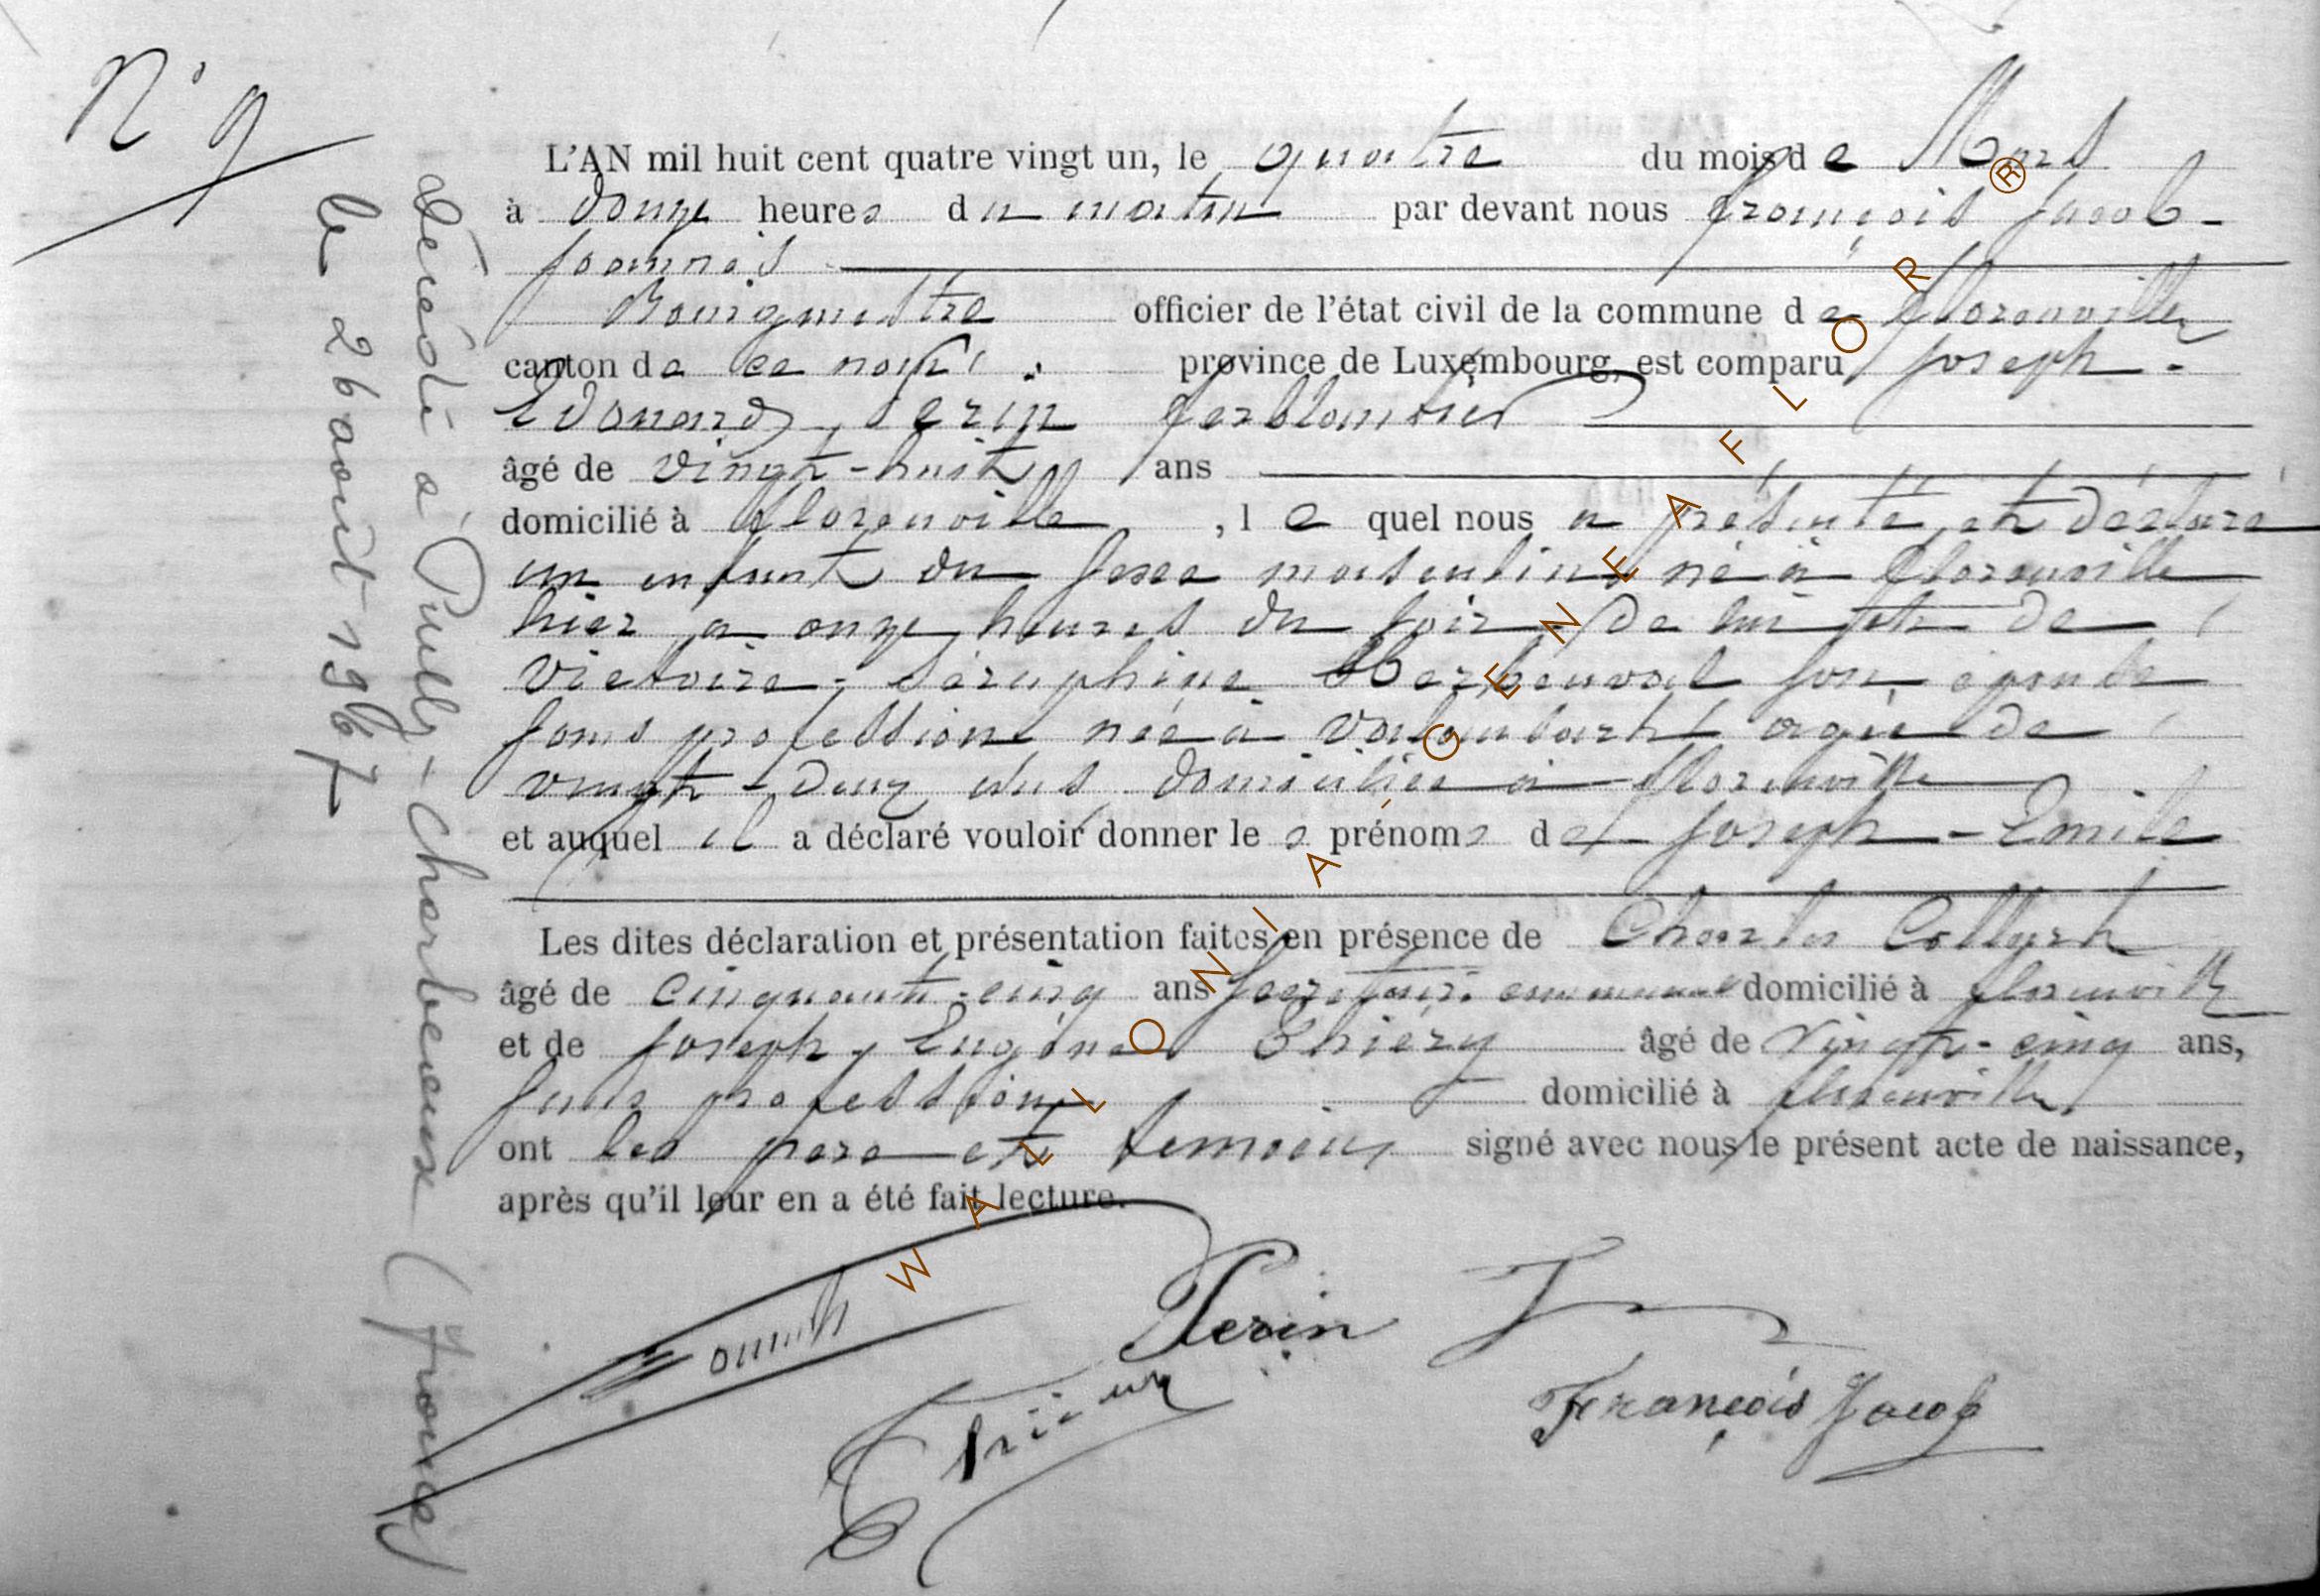 N° 9
L'AN mil huit cent quatre vingt un, le quatre du mois de Mars
à douze heures du matin par devant nous François Jacob-
Joannes
Bourgmestre officier de l'état civil de la commune de Florenville
canton de ce nom province de Luxembourg, est comparu Joseph-
Edouard Perin ferblantier
âgé de vingt-huit ans
domicilié à Florenville, lequel nous a présenté et déclaré
un enfant du sexe masculin né à Florenville
hier à onze heures du soir de lui et de
Victoire-Séraphine son épouse
sans profession née à agée de
vingt-deux ans domiciliée à Florenville
et auquel il a déclaré vouloir donner les prénoms de Joseph-Emile
Les dites déclaration et présentation faites en présence de Charles
âgé de cinquante-cinq ans secrétaire communal domicilié à Florenville
et de Joseph-Eugène Thiéry âgé de vingt-cinq ans,
sans profession domicilié à Florenville
ont les père et témoins signé avec nous le présent acte de naissance,
après qu'il leur en a été fait lecture.
Perin
François Jacob
décédé à Puilly-Charbeaux (france)
le 26 août 1967
WALLONIA GENEA FLOR ®